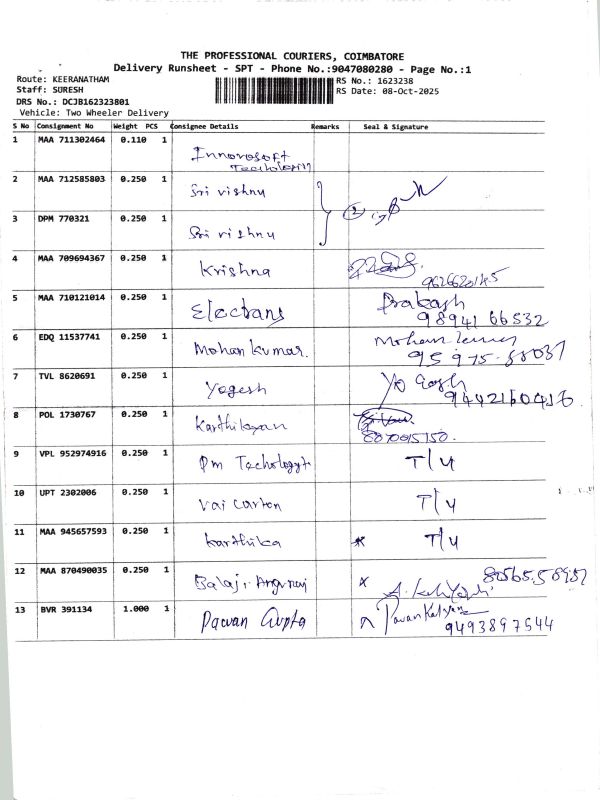 THE PROFESSIONAL COURIERS, COIMBATORE
Delivery Runsheet - SPT - Phone No.:9047080280 - Page No.:1
Route: KEERANATHAM RS No.: 1623238
Staff: SURESH RS Date: 08-Oct-2025
DRS No.: DCJB162323801
Vehicle: Two Wheeler Delivery
S No Consignment No Weight PCS Consignee Details Remarks Seal & Signature
1 MAA 711302464 0.110 1 Innovosoft
2 MAA 712585803 0.250 1 Sri vishnu
3 DPM 770321 0.250 1 Sri vishnu
4 MAA 709694367 0.250 1 Krishna
5 MAA 710121014 0.250 1 Electrans Prakash
9894166532
6 EDQ 11537741 0.250 1 Mohan kumar. Mohan
7 TVL 8620691 0.250 1 Yogesh Yogesh
8 POL 1730767 0.250 1 Karthikeyan
9 VPL 952974916 0.250 1 Pm T/4
10 UPT 2302006 0.250 1 Vai Carton T/4
11 MAA 945657593 0.250 1 Karthika T/4
12 MAA 870490035 0.250 1 Balaji
13 BVR 391134 1.000 1 Pawan Gupta Pavan Kalyan
9493897544